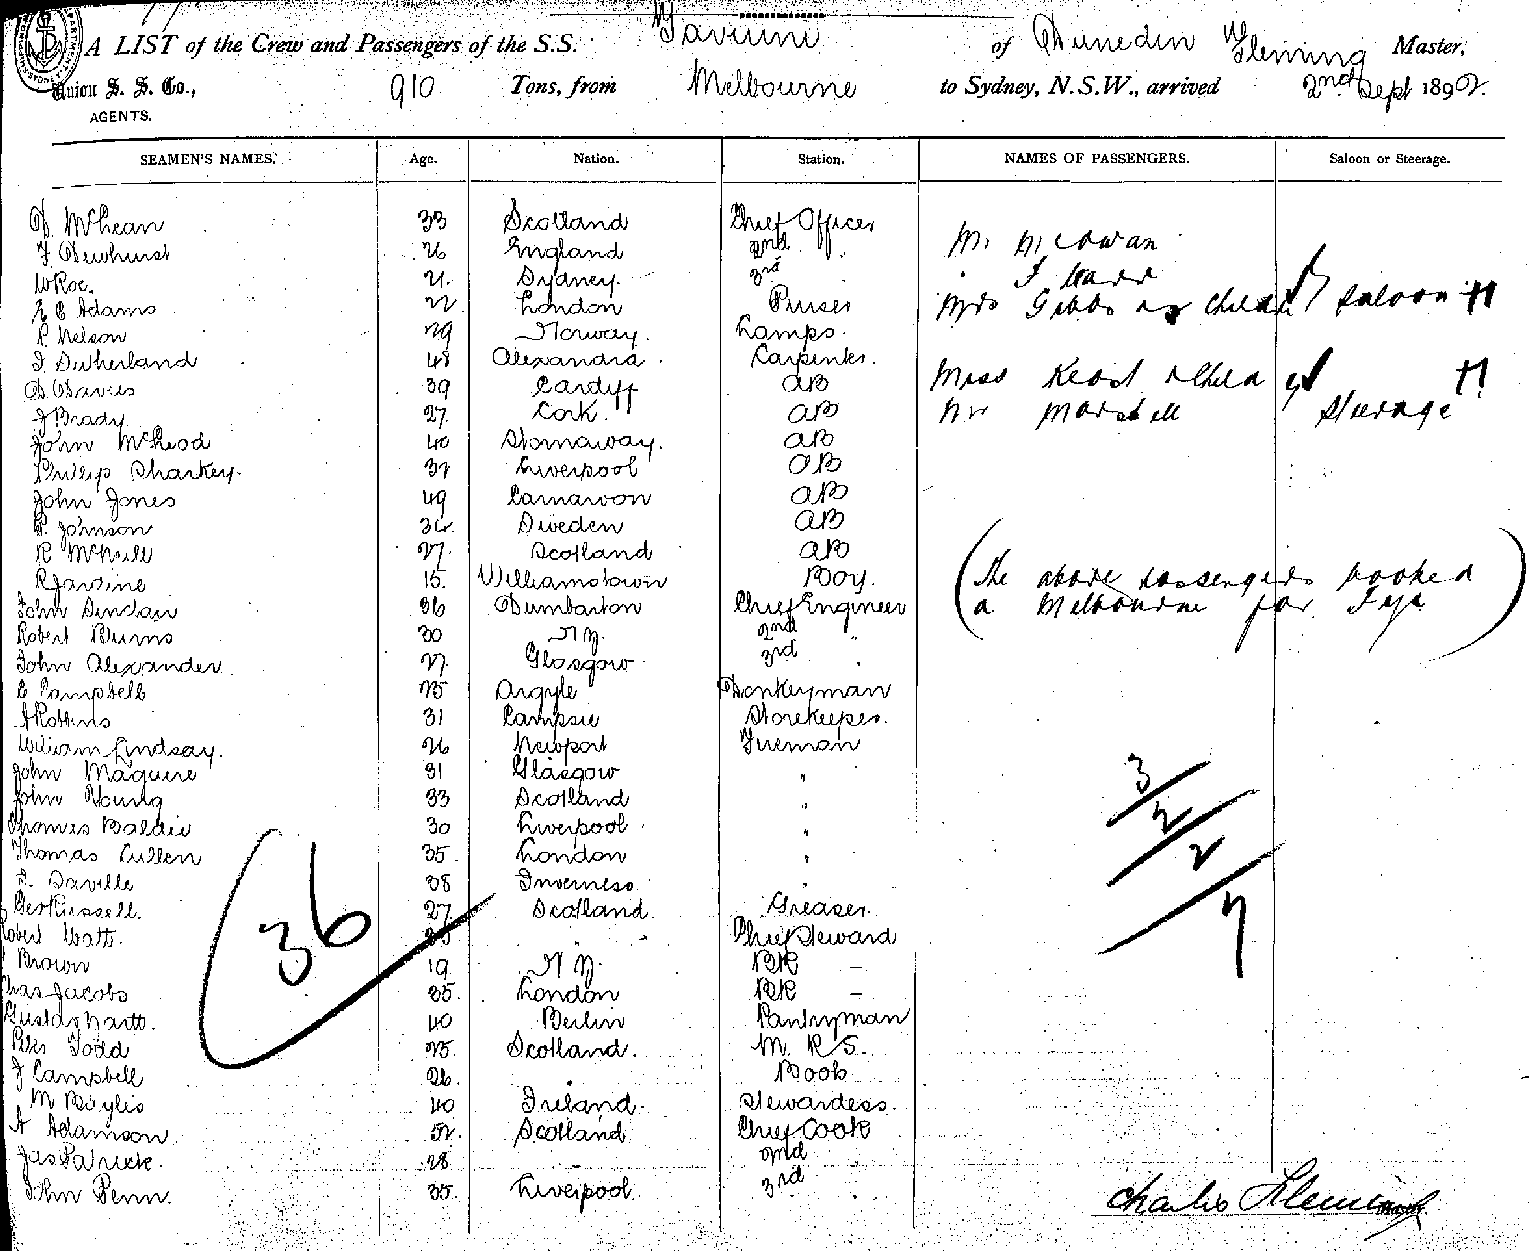 A LIST of the Crew and Passengers of the S.S. Taviuni of Dunedin W Fleming Master,
Union S. S. Co., 910 Tons, from Melbourne to Sydney, N.S.W., arrived 2nd Sept 1892.
AGENTS.
SEAMEN'S NAMES. Age. Nation. Station. NAMES OF PASSENGERS. Saloon or Steerage.
D. McLean 33 Scotland Chief Officer
F Dewhurst 26 England 2nd "
Mr McCowan
W Roe. 21. Sydney. 3rd "
" J
E C Adams 22 London Purser
Mrs Gibbs & Child Saloon
P. Nelson 29 Norway. Lamps.
J. Sutherland 48 Alexandra. Carpenter.
D Davies 39 Cardiff AB
Miss & Child
J Brady 27. Cork. AB
Mr Marshell Steerage
John McLeod 40 Stornaway. AB
Phillip Sharkey. 32 Liverpool AB
John Jones 49 Carnarvon AB
P. Johnson 34. Sweden AB
R McNeill 27. Scotland AB
R Jardine 15. Williamstown Boy.
(The above passengers booked
John Sinclair 36 Dumbarton Chief Engineer
a Melbourne for Fiji)
Robert Burns 30 N Z. 2nd "
John Alexander. 27. Glasgow 3rd "
C Campbell 25 Argyle Donkeyman
J Robbins 31 Campsie Storekeeper.
William Lindsay. 26 Newport Fireman
John Maguire 31 Glasgow "
3
John Young 33 Scotland "
2
Thomas Baldie 30 Liverpool "
Thomas Cullen 35. London "
2
Saville 38 Inverness
Geo Russell. 27 Scotland. Greaser.
7
36
Robert Watt. " Chief Steward
Brown 19 N Z. BR –
Chas Jacobs 35. London BR –
Gustav Bartt. 40 Berlin Pantryman
Peter Todd 25. Scotland. M. R S.
J Campbell 26. " Boob
M Baylis 40 Ireland. Stewardess.
A Adamson 52. Scotland. Chief Cook
Jas Patrick. 28 " 2nd
John Penn. 35. Liverpool. 3rd "
Charles Fleming